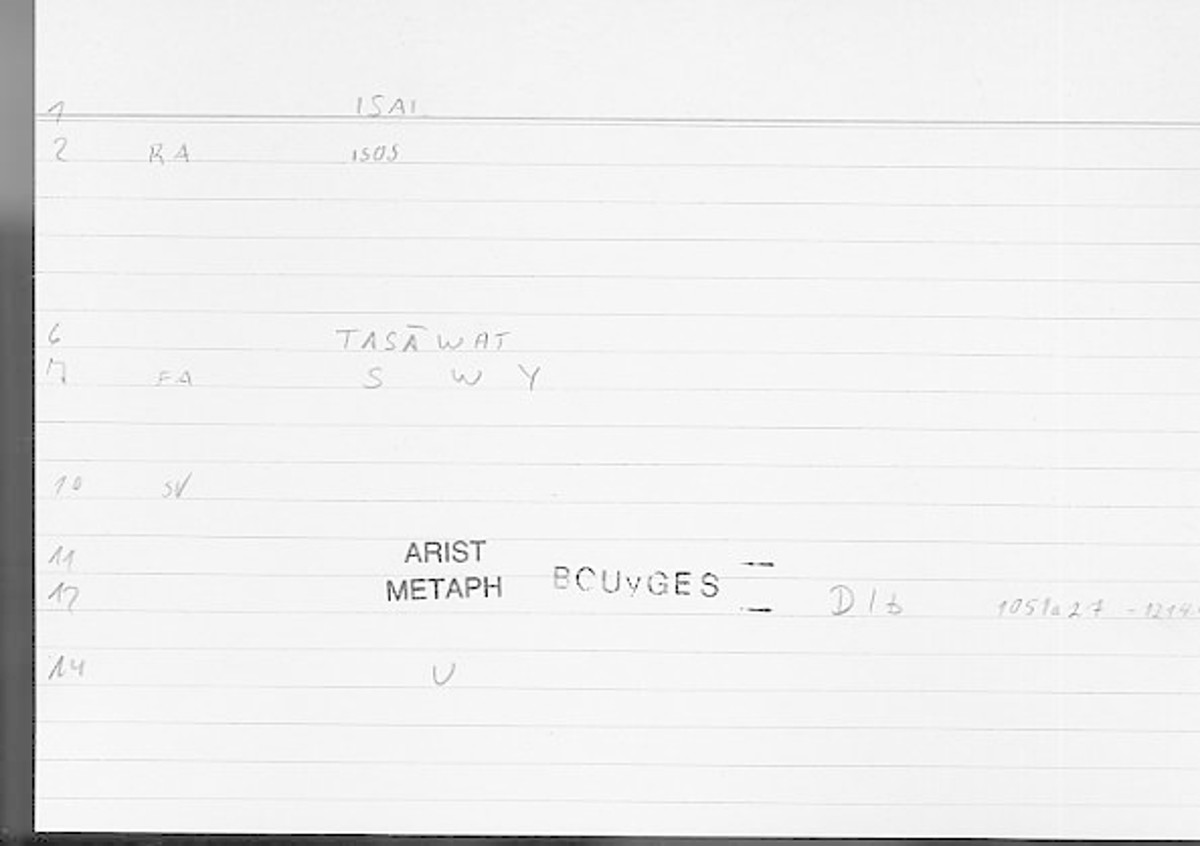 1 ISAI
2 RA ISOS
6 TASĀWAT
7 FA S W Y
10 SV
11 ARIST
12 METAPH BOUYGES DIb 1051a27 -1214
14 U